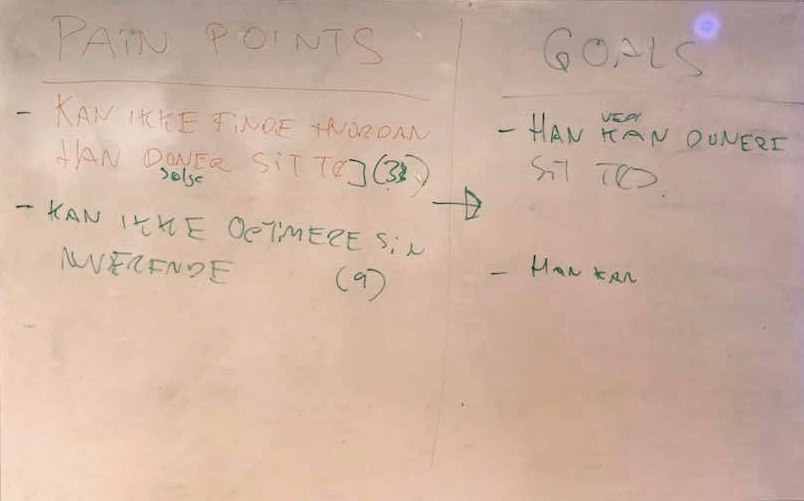 PAIN POINTS
- KAN IKKE FINDE HVORDAN
HAN DONER SIT TØJ (3)
Solge
- KAN IKKE OPTIMERE SIN
NUVÆRENDE (9)
GOALS
- HAN KAN DONERE
SIT TØJ
- HAN KAN